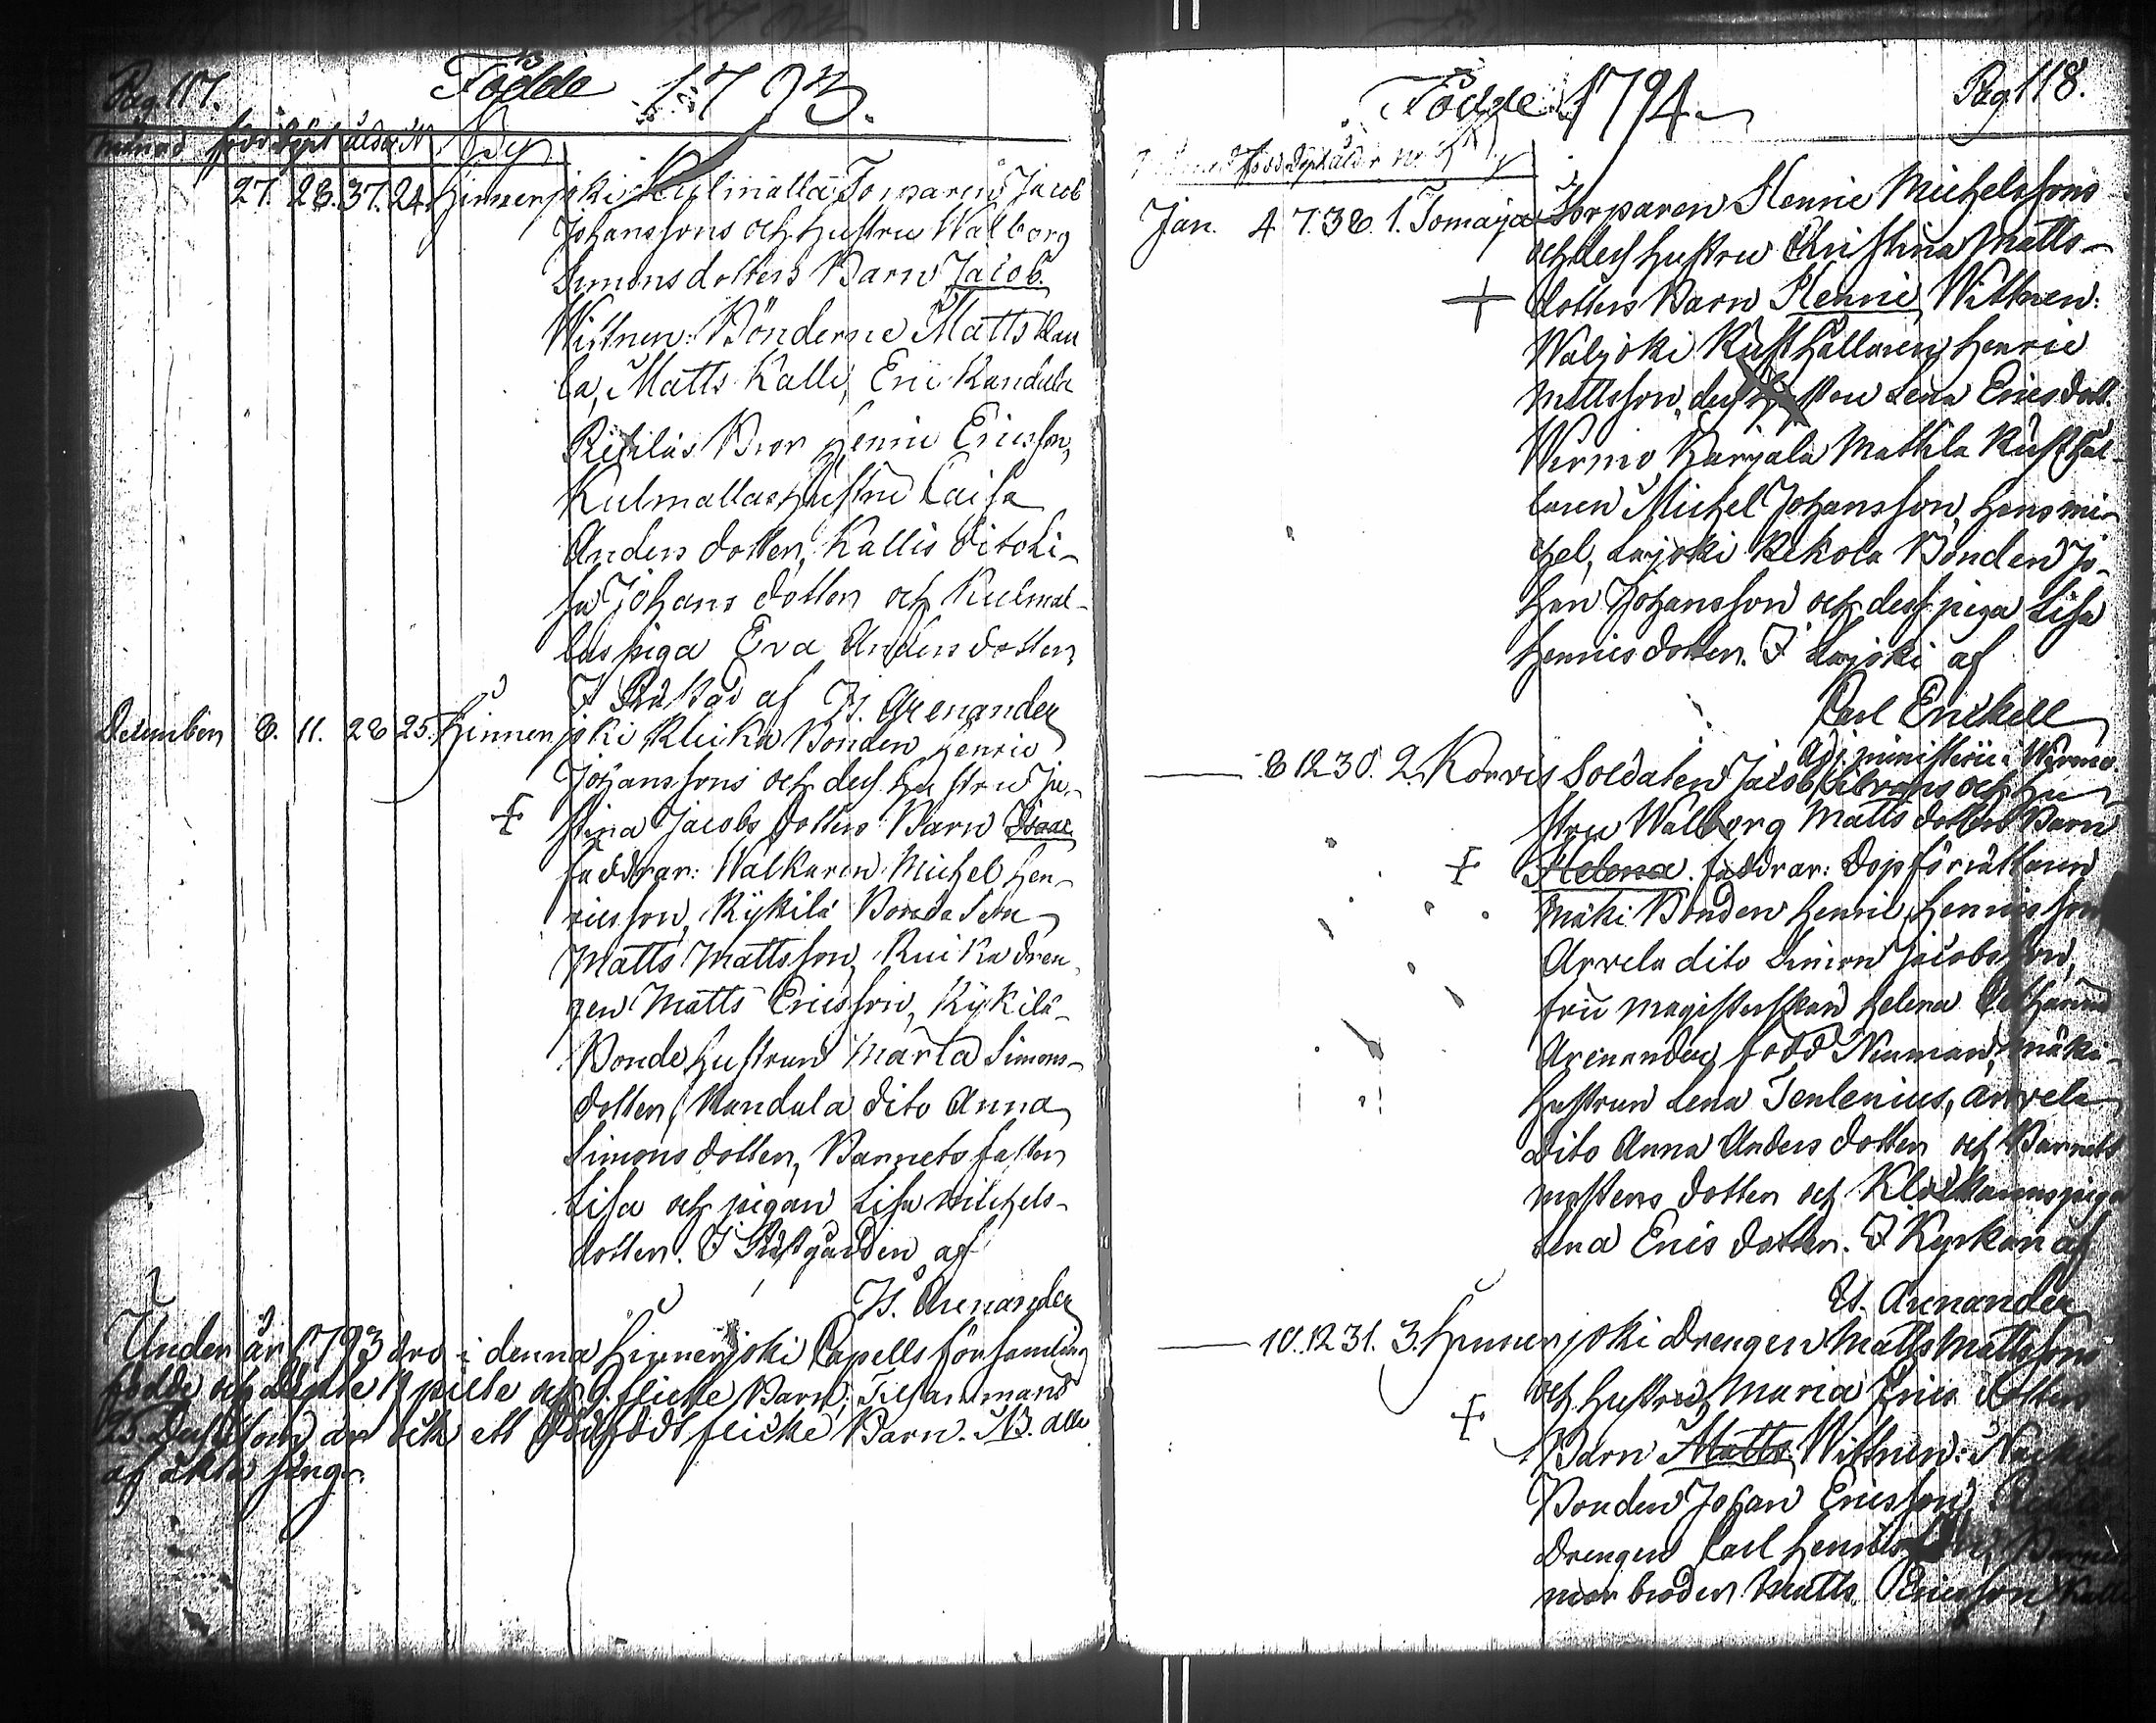 Pag. 117. Födde 1793.
Månad född döpt ålder N By
27. 28. 37. 24. Hinnerjoki Kulmalla Torparens Jacob
Johanssons och Hustru Walborg
Simonsdotters Barn Jacob.
Wittnen: Bönderne Matts Kau
la, Matts Kalli, Eric Kandula
Bror Henric Ericsson,
Kulmallas Hustru Caisa
Anders dotter, Kallis dito Li-
sa Johans dotter och Kulmal-
las piga Eva Anders dotter
I af Is. Arenander
December 8. 11. 28 25. Hinnerjoki Bonden Henric
Johanssons och dess hustru Ju-
stina Jacobs dotters Barn Isaac
faddrar: Walkaren Michel Hen-
ricsson, Kykilä Bonde Son
Matts Mattsson, dren
gen Matts Ericsson, Kykilä
Bonde Hustrun Marta Simons-
dotter, Kandula dito Anna
Simons dotter, Barnets faster
Lisa och pigan Lisa Michels-
dotter. I af
Is. Arenander
Under år 1793 äro i denna Hinnerjoki Capells församling
födde och döpte pilte och 9. flicke Barn, Tilsammans
25. Dess utom är ock ett dödfödt flicke Barn. NB. alle
af äkta säng.
Födde 1794 Pag. 118.
född döpt ålder No By
Jan. 4 7. 38. 1. Torparen Henric Michelssons
och dess hustru Christina Matts-
dotters Barn Henric, Wittnen:
Rusthållaren Henric
Mattsson, dess Hustru Lena Erics dott.
Wirmo Karjala Mattila Rusthål-
laren Michel Johansson, Hans Mi-
chel, Rekola Bonden Jo-
han Johansson och dess piga Lisa
Henrics dotter. I af
Carl Enckell
Adj. ministerii i Wirmo
8 12 30. 2. Korvis Soldaten Jacob och Hu-
stru Walborg Matts dotters Barn
Helena. faddrar: Dopförrättaren
Mäki Bonden Henric Henricsson
Arvela dito Simon Jacobsson,
fru Magisterskan Helena
Arenander född Neuman, Mäki
Hustrun Lena Tenlenius, Arvela
dito Anna Anders dotter och Barnets
mosters dotter och Klockarens piga
Lena Erics dotter. I Kyrkan af
Is. Arenander
10. 12 31. 3. Hinnerjoki Drengen Matts Mattssons
och hustrus Maria Erics dotters
Barn Matts, Wittnen:
Bonden Johan Ericsson,
Drengen Carl Henricsson,
mor broder Matts Ericsson,